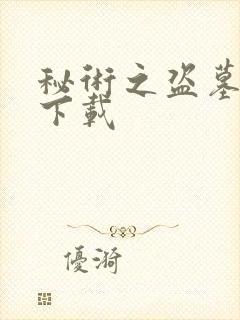 秘術之盜墓
下載
優漪